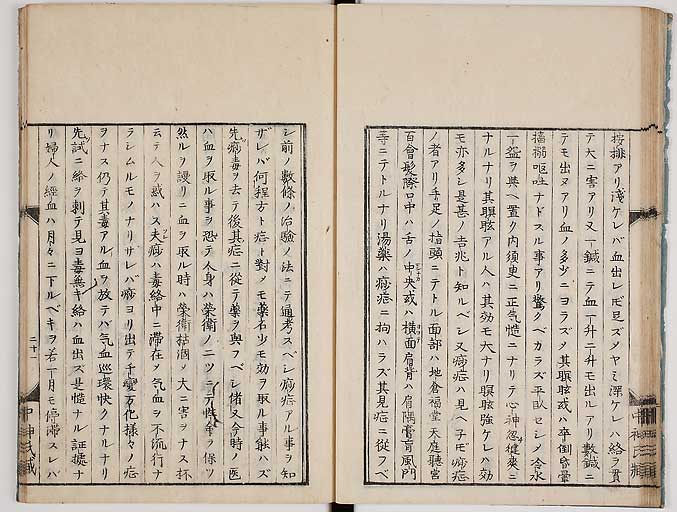 按排アリ淺ケレバ血出レ𪜈足ズタヤミ深ケレハ絡ヲ貫
テ大ニ害アリ又一鍼ニテ血一升二升モ出ルアリ數鍼ニ
テモ出ヌアリ血ノ多少ニヨラズ其瞑眩或ハ卒倒昏暈
搐搦嘔吐ナドスル事アリ驚クベカラズ平臥セシメ冷水
一盌ヲ與ヘ置ク内須更ニ正気慥ニナリテ心神忽健爽ニ
ナルナリ其瞑眩アル人ハ其効モ大ナリ瞑眩強ケレハ効
モ亦多シ是善ノ吉兆ト知ルベシ又痧症ハ見ヘ子𪜈痧症
ノ者アリ手足ノ指頭ニテトル面部ハ地倉福堂天庭聽宮
百會髮際口中ハ舌ノ中央或ハ横面肩背ハ肩隅膏肓風門
等ニテトルナリ湯藥ハ痧症ニ拘ハラズ其見症ニ從フベ
シ前ノ數條ノ治驗ノ法ニテ通考スベシ痧症アル事ヲ知
ザレバ何程方ト症ト對メモ藥石少モ効ヲ取ル事能ハズ
先痧毒ヲ去テ後其症ニ從テ藥ヲ與フベシ偖又今時ノ医
ハ血ヲ取ル事ヲ恐テ人身ハ榮衛ノ二ツニテ性命ヲ保ツ
然ルヲ謾リニ血ヲ取ル時ハ榮衛枯涸メ大ニ害ヲナス抔
云テ人ヲ惑ハス夫痧ハ毒絡中ニ滞在メ気血ヲ不流行ナ
ラシムルモノナリサレバ痧ヨリ出テ千變万化様々ノ症
ヲナス仍テ其毒アル血ヲ放テバ气血巡環快クナルナリ
先試ニ絡ヲ刺テ見ヨ毒無キ絡ハ血出ズ是慥ナル証據ナ
リ婦人ノ經血ハ月々ニ下ルベキヲ若一月モ停滞スレバ
二十一
中神氏藏